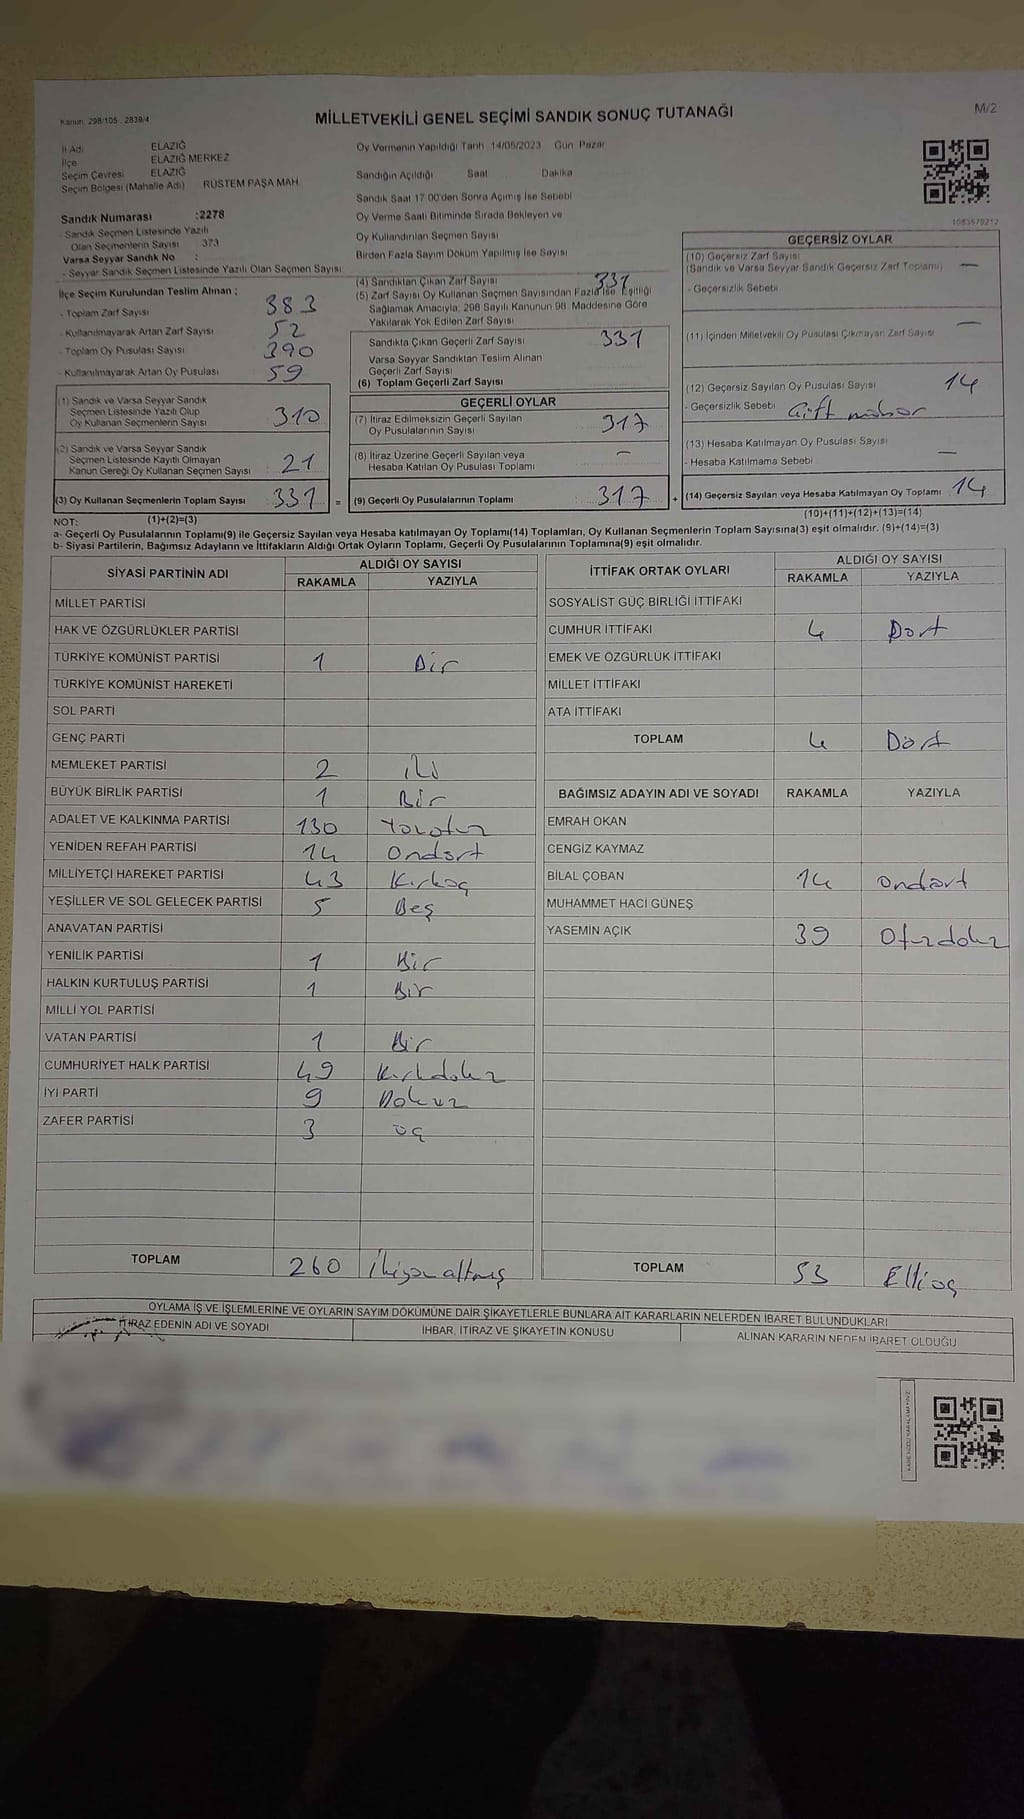 Kanun: 298/105 - 2839/4
MİLLETVEKİLİ GENEL SEÇİMİ SANDIK SONUÇ TUTANAĞI
M/2
İl Adı ELAZIĞ
İlçe ELAZIĞ MERKEZ
Seçim Çevresi ELAZIĞ
Seçim Bölgesi (Mahalle Adı) RÜSTEM PAŞA MAH.
Sandık Numarası :2278
- Sandık Seçmen Listesinde Yazılı
Olan Seçmenlerin Sayısı 373
Varsa Seyyar Sandık No :
- Seyyar Sandık Seçmen Listesinde Yazılı Olan Seçmen Sayısı
İlçe Seçim Kurulundan Teslim Alınan ;
- Toplam Zarf Sayısı 383
- Kullanılmayarak Artan Zarf Sayısı 52
- Toplam Oy Pusulası Sayısı 390
- Kullanılmayarak Artan Oy Pusulası 59
(1) Sandık ve Varsa Seyyar Sandık
Seçmen Listesinde Yazılı Olup
Oy Kullanan Seçmenlerin Sayısı 310
(2) Sandık ve Varsa Seyyar Sandık
Seçmen Listesinde Kayıtlı Olmayan
Kanun Gereği Oy Kullanan Seçmen Sayısı 21
(3) Oy Kullanan Seçmenlerin Toplam Sayısı 331 =
Oy Vermenin Yapıldığı Tarih 14/05/2023 Gün Pazar
Sandığın Açıldığı Saat Dakika
Sandık Saat 17:00'den Sonra Açımış İse Sebebi
Oy Verme Saati Bitiminde Sırada Bekleyen ve
Oy Kullandırılan Seçmen Sayısı
Birden Fazla Sayım Döküm Yapılmış İse Sayısı
(4) Sandıktan Çıkan Zarf Sayısı 331
(5) Zarf Sayısı Oy Kullanan Seçmen Sayısından Fazla İse, Eşitliği
Sağlamak Amacıyla, 298 Sayılı Kanunun 98. Maddesine Göre
Yakılarak Yok Edilen Zarf Sayısı
Sandıkta Çıkan Geçerli Zarf Sayısı 331
Varsa Seyyar Sandıktan Teslim Alınan
Geçerli Zarf Sayısı
(6) Toplam Geçerli Zarf Sayısı
GEÇERLİ OYLAR
(7) İtiraz Edilmeksizin Geçerli Sayılan
Oy Pusulalarının Sayısı 317
(8) İtiraz Üzerine Geçerli Sayılan veya
Hesaba Katılan Oy Pusulası Toplamı —
(9) Geçerli Oy Pusulalarının Toplamı 317 +
1083570212
GEÇERSİZ OYLAR
(10) Geçersiz Zarf Sayısı
(Sandık ve Varsa Seyyar Sandık Geçersiz Zarf Toplamı) —
- Geçersizlik Sebebi
(11) İçinden Milletvekili Oy Pusulası Çıkmayan Zarf Sayısı —
(12) Geçersiz Sayılan Oy Pusulası Sayısı 14
- Geçersizlik Sebebi Çift mühür
(13) Hesaba Katılmayan Oy Pusulası Sayısı —
- Hesaba Katılmama Sebebi
(14) Geçersiz Sayılan veya Hesaba Katılmayan Oy Toplamı 14
NOT: (1)+(2)=(3)
(10)+(11)+(12)+(13)=(14)
a- Geçerli Oy Pusulalarının Toplamı(9) ile Geçersiz Sayılan veya Hesaba katılmayan Oy Toplamı(14) Toplamları, Oy Kullanan Seçmenlerin Toplam Sayısına(3) eşit olmalıdır. (9)+(14)=(3)
b- Siyasi Partilerin, Bağımsız Adayların ve İttifakların Aldığı Ortak Oyların Toplamı, Geçerli Oy Pusulalarının Toplamına(9) eşit olmalıdır.
SİYASİ PARTİNİN ADI ALDIĞI OY SAYISI
RAKAMLA YAZIYLA
MİLLET PARTİSİ
HAK VE ÖZGÜRLÜKLER PARTİSİ
TÜRKİYE KOMÜNİST PARTİSİ 1 Bir
TÜRKİYE KOMÜNİST HAREKETİ
SOL PARTİ
GENÇ PARTİ
MEMLEKET PARTİSİ 2 iki
BÜYÜK BİRLİK PARTİSİ 1 Bir
ADALET VE KALKINMA PARTİSİ 130 Yüzotuz
YENİDEN REFAH PARTİSİ 14 Ondört
MİLLİYETÇİ HAREKET PARTİSİ 43 Kırküç
YEŞİLLER VE SOL GELECEK PARTİSİ 5 Beş
ANAVATAN PARTİSİ
YENİLİK PARTİSİ 1 Bir
HALKIN KURTULUŞ PARTİSİ 1 Bir
MİLLİ YOL PARTİSİ
VATAN PARTİSİ 1 Bir
CUMHURİYET HALK PARTİSİ 49 Kırkdokuz
İYİ PARTİ 9 Dokuz
ZAFER PARTİSİ 3 üç
TOPLAM 260 İkiyüzaltmış
İTTİFAK ORTAK OYLARI ALDIĞI OY SAYISI
RAKAMLA YAZIYLA
SOSYALİST GÜÇ BİRLİĞİ İTTİFAKI
CUMHUR İTTİFAKI 4 Dört
EMEK VE ÖZGÜRLÜK İTTİFAKI
MİLLET İTTİFAKI
ATA İTTİFAKI
TOPLAM 4 Dört
BAĞIMSIZ ADAYIN ADI VE SOYADI RAKAMLA YAZIYLA
EMRAH OKAN
CENGİZ KAYMAZ
BİLAL ÇOBAN 14 ondört
MUHAMMET HACİ GÜNEŞ
YASEMİN AÇIK 39 Otuzdokuz
TOPLAM 53 Elliüç
OYLAMA İŞ VE İŞLEMLERİNE VE OYLARIN SAYIM DÖKÜMÜNE DAİR ŞİKAYETLERLE BUNLARA AİT KARARLARIN NELERDEN İBARET BULUNDUKLARI
İTİRAZ EDENİN ADI VE SOYADI İHBAR, İTİRAZ VE ŞİKAYETİN KONUSU ALINAN KARARIN NEDEN İBARET OLDUĞU